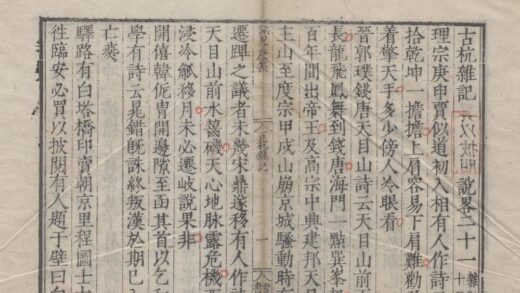 古杭雜記 說畧二十一
理宗庚申賈似道初入相有人作詩
拾乾坤一擔擔上肩容易下肩難勸
着擎天手多少傍人冷眼看
晉郭璞錢唐天目山詩云天目山前
長龍飛鳳舞到錢唐海門一點巽峯
百年間出帝王及高宗中興建邦天
主山至度宗甲戌山崩京城騷動時有
遷蹕之議者未幾宋鼎遂移有人作
天目山前水嚙磯天心地脉露危機
浸冷觚稜月未必遷岐說果非
開禧韓侂胄開邊隙至函其首以乞
學有詩云晁錯既誅終叛漢於期已
亡燕
驛路有白塔橋印賣朝京里程圖士
往臨安必買以披閱有人題于壁曰